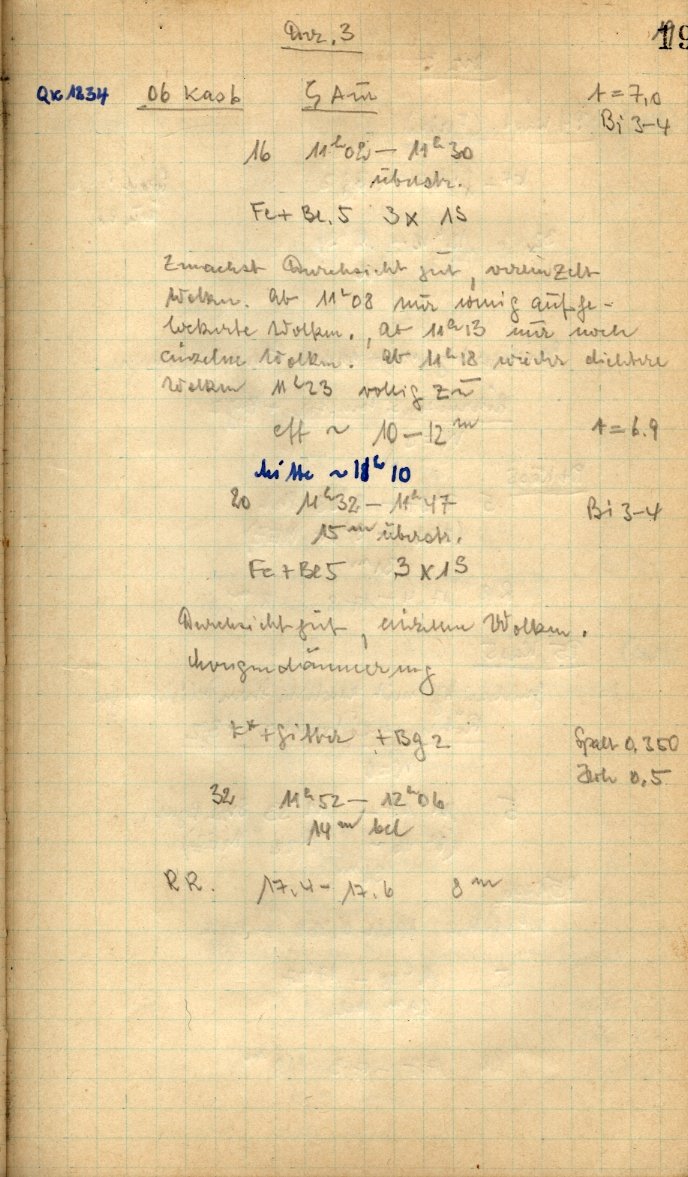 Dez. 3
19
QK 1234 Ob Kasb ζ Aur t = 7,0
Bi 3-4
16 11ʰ02 — 11ʰ30
überstr.
Fe + Be. 5 3 × 1ˢ
Zunächst Durchsicht gut, vereinzelt
Wolken. Ab 11ʰ08 nur wenig aufge-
lockerte Wolken., Ab 11ʰ13 nur noch
einzelne Wolken. Ab 11ʰ18 wieder dichtere
Wolken 11ʰ23 völlig zu
eff ~ 10 — 12ᵐ t = 6.9
Mitte ~ 11ʰ10
20 11ʰ32 — 11ʰ47 Bi 3-4
15ᵐ überstr.
Fe + Be 5 3 × 1ˢ
Durchsicht gut, einzelne Wolken.
Morgendämmerung
+ Gitter + Bg 2 Spalt 0,350
0,5
32 11ʰ52 — 12ʰ06
14ᵐ bel
RR. 17.4 - 17.6 8ᵐ